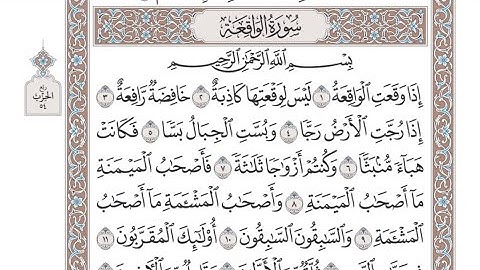 سُورَةُ الوَاقِعَةِ
بِسْمِ اللَّهِ الرَّحْمَٰنِ الرَّحِيمِ
إِذَا وَقَعَتِ الْوَاقِعَةُ ١ لَيْسَ لِوَقْعَتِهَا كَاذِبَةٌ ٢ خَافِضَةٌ رَّافِعَةٌ ٣
إِذَا رُجَّتِ الْأَرْضُ رَجًّا ٤ وَبُسَّتِ الْجِبَالُ بَسًّا ٥ فَكَانَتْ
هَبَاءً مُّنْبَثًّا ٦ وَكُنتُمْ أَزْوَاجًا ثَلَاثَةً ٧ فَأَصْحَابُ الْمَيْمَنَةِ
مَا أَصْحَابُ الْمَيْمَنَةِ ٨ وَأَصْحَابُ الْمَشْـَٔمَةِ مَا أَصْحَابُ
الْمَشْـَٔمَةِ ٩ وَالسَّابِقُونَ السَّابِقُونَ ١٠ أُولَٰئِكَ الْمُقَرَّبُونَ ١١
ربع
الحزب
٥٤